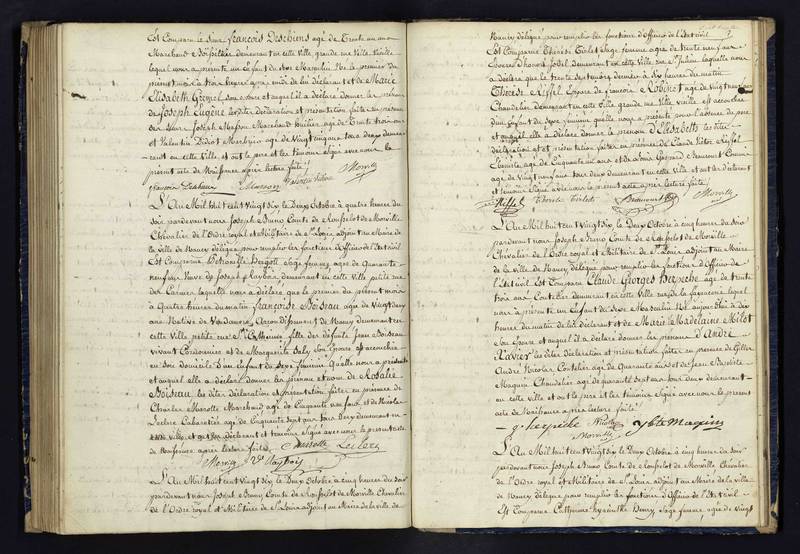 Est Comparu le Sieur françois Deschiens agé de Trente un ans
Marchand demeurant en cette Ville, grande rue Ville Vieille
lequel nous a présenté un Enfant du Sexe Masculin Né le premier du
présent mois à trois heures après midi de lui déclarant et de Marie
Elisabeth Grimel, son épouse et auquel il a déclaré donner les prénoms
de Joseph Eugène les dites déclaration et présentation faites en présence
des Sieurs Joseph Masson Marchand agé de Trente trois ans
et Valentin Didot agé de Vingt cinq ans tous deux demeu-
rant en cette Ville, et ont le père et les témoins signé avec nous le
présent acte de Naissance après lecture faite
françois Deschiens Masson Valentin Didot Morvilly
L'An Mil huit cent Vingt six le Deux Octobre à quatre heures du
soir pardevant nous Joseph Bruno Comte de Rousselot de Morville
Chevalier de l'Ordre royal et Militaire de St Louis adjoint au Maire de
la Ville de Nancy délégué pour remplir les fonctions d'Officier de l'Etat Civil
Est Comparue Pétronille Bergott Sage femme, agée de Quarante
neuf ans Veuve de Joseph demeurant en cette Ville petite rue
des Carmes laquelle nous a déclaré que le premier du présent mois
à Quatre heures du matin françoise Boiseau agée de Vingt deux
ans Native de Vandoeuvre, Arrondissement de Nancy demeurant en
cette Ville petite rue Ste Catherine fille des défunts Jean Boiseau
vivant Cordonnier et de Marguerite Saly son Epouse est accouchée
en son domicile d'un enfant du Sexe féminin Qu'elle nous a présenté
et auquel elle a déclaré donner les prénoms et nom de Rosalie
Boiseau, les dites déclaration et présentation faites en présence de
Charles Marotte Marchand agé de Cinquante neuf ans, et de Nicolas
Leclerc Cabaretier agé de Cinquante Sept ans tous Deux demeurant en
cette ville et ont les déclarante et témoins signé avec nous le présent acte
de Naissance après lecture faite Marotte Leclerc
Morvilly
L'An Mil huit cent Vingt six le Deux Octobre à cinq heures du soir
pardevant nous Joseph Bruno Comte de Rousselot de Morville Chevalier
de l'Ordre royal et Militaire de St Louis adjoint au Maire de la ville de
Nancy délégué pour remplir les fonctions d'Officier de l'Etat civil
Est Comparue Thérèse Tirlet Sage femme agée de trente neuf ans
demeurant en cette Ville, rue St Julien laquelle nous
a déclaré que le trente septembre dernier à dix heures du matin
Thérèse Riffel Epouse de françois Robinet agé de vingt neuf ans
Chandelier demeurant en cette Ville grande rue Ville vieille, est accouchée
d'un Enfant du Sexe féminin qu'elle nous a présenté pour l'absence du père
et auquel elle a déclaré donner le prénom d'Elisabeth les dites
déclaration et présentation faites en présence de Claude Victor Riffel
Ebéniste agé de Cinquante un ans et de Louis Gaspard Beaumont Commis
agé de Vingt neuf ans tous deux demeurant en cette Ville et ont les déclarante
et témoins signé avec nous le présent acte après lecture faite
Riffel Thérèse Tirlet Beaumont Morvilly
L'An Mil huit cent Vingt six le Deux Octobre à cinq heures du soir
pardevant nous Joseph Bruno Comte de Rousselot de Morville
Chevalier de l'Ordre royal et Militaire de St Louis adjoint au Maire
de la Ville de Nancy délégué pour remplir les fonctions d'Officier de
l'Etat civil Est Comparu Claude Georges Herpeche agé de trente
trois ans Coutelier demeurant en cette Ville rue de la lequel
nous a présenté un Enfant du Sexe Masculin Né aujourd'hui à dix
heures du matin de lui déclarant et de Marie Madelaine Milot
son Epouse et auquel il a déclaré donner les prénoms d'André
Xavier les dites déclaration et présentation faites en présence de
André Nicolas Coutelier agé de Quarante ans et de Jean Baptiste
Maquin Chandelier agé de quarante Sept ans tous deux demeurant
en cette ville et ont le père et les témoins signé avec nous le présent
acte de Naissance après lecture faite
g. herpeche Nicolas J bte Maquin
Morvilly
L'An Mil huit cent Vingt six le Deux Octobre à cinq heures du soir
pardevant nous Joseph Bruno Comte de Rousselot de Morville, Chevalier
de l'Ordre royal et Militaire de St Louis adjoint au Maire de la ville
de Nancy délégué pour remplir les fonctions d'Officier de l'Etat civil
Est Comparue Catherine hyacinthe Henry Sage femme, agée de vingt